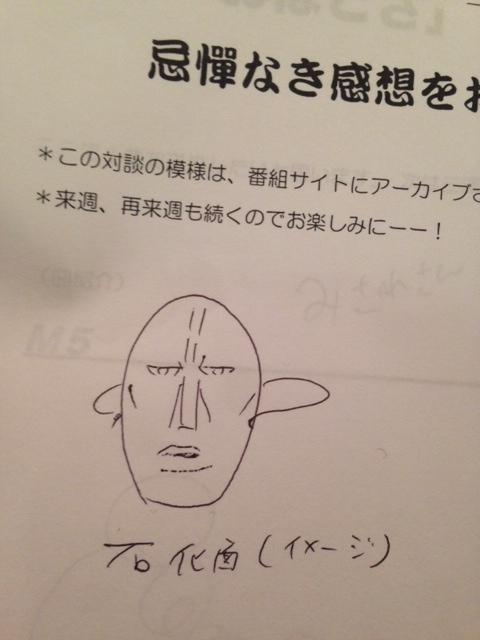 忌憚なき感想をお
＊この対談の模様は、番組サイトにアーカイブさ
＊来週、再来週も続くのでお楽しみにーー！
M5
石化面（イメージ）